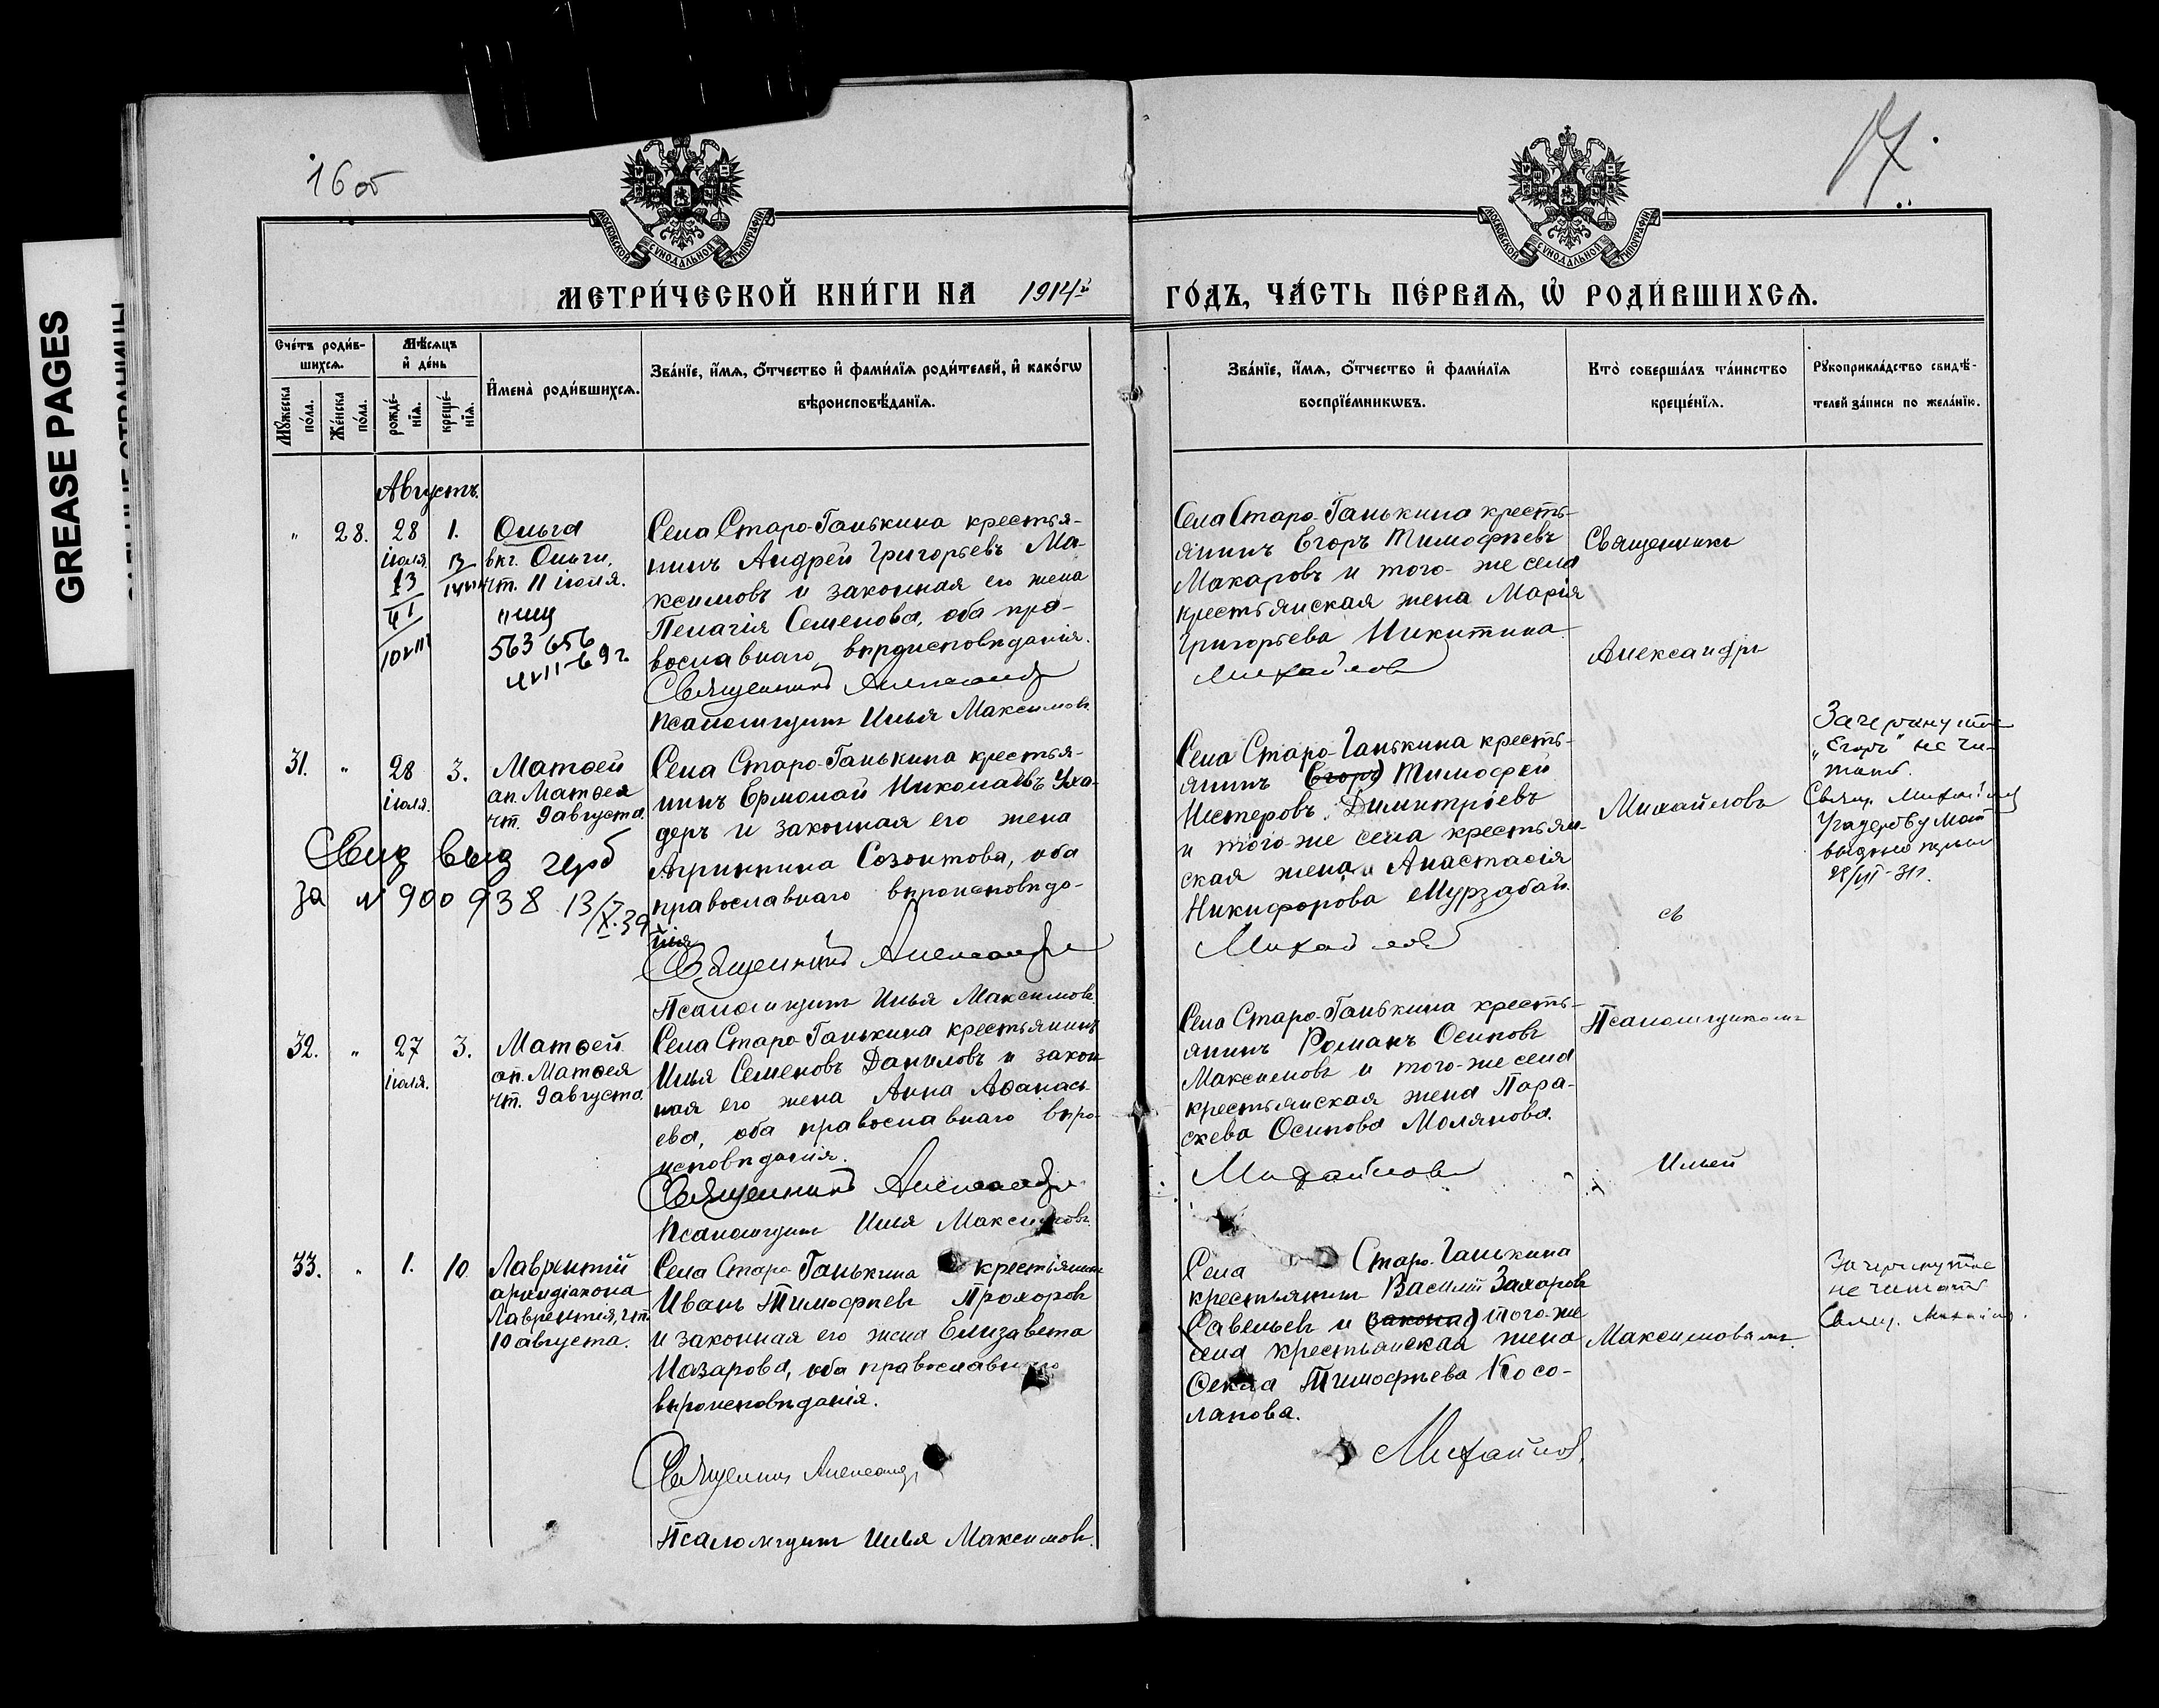 GREASE PAGES
16 об
17
МОСКОВСКОЙ СѴНОДАЛЬНОЙ ТИПОГРАФІИ
МОСКОВСКОЙ СѴНОДАЛЬНОЙ ТИПОГРАФІИ
МЕТРИ́ЧЕСКОЙ КНИ́ГИ НА 1914й ГО́ДЪ, ЧА́СТЬ ПЕ́РВАѦ, Ѡ҆ РОДИ́ВШИХСѦ.
Сче́тъ роди́в-
шихсѧ.
Мѣ́сѧцъ
и҆ де́нь
Мꙋ́жеска по́ла.
Же́нска по́ла.
рожде́-
нїѧ.
креще́-
нїѧ.
И҆мена̀ роди́вшихсѧ.
Зва́нїе, и҆́мѧ, ѻ҆́тчество и҆ фами́лїѧ роди́телей, и҆ како́гѡ
вѣроисповѣ́данїѧ.
Зва́нїе, и҆́мѧ, ѻ҆́тчество и҆ фами́лїѧ
воспрїе́мникѡвъ.
Кто̀ соверша́лъ та́инство
креще́нїѧ.
Рꙋкоприкла́дство свидѣ́-
телей за́писи по жела́нїю.
Августъ.
" 28. 28 1. Ольга
іюля.
вкг. Ольги,
чт. 11 іюля.
563656
Села Старо-Ганькина крестья-
нинъ Андрей Григорьевъ Ма-
ксимовъ и законная его жена
Пелагія Семенова, оба пра-
вославнаго вѣроисповѣданія.
Священникъ Александръ
Псаломщикъ Илья Максимовъ.
Села Старо-Ганькина кресть-
янинъ Егоръ Тимофѣевъ
Макаровъ и того-же села
крестьянская жена Марія
Григорьева Никитина.
Михайловъ
Священникъ
Александръ
Михайловъ
съ
Псаломщикомъ
Ильей
Максимовымъ.
31. " 28 3. Матѳей
іюля.
ап. Матѳея
чт. 9 августа.
Свид выд герб
за № 900938 13/X.39
Села Старо-Ганькина крестья-
нинъ Ермолай Николаевъ Уха-
деръ и законная его жена
Агриппина Созонтова, оба
православнаго вѣроисповѣда-
нія
Священникъ Александръ
Псаломщикъ Илья Максимовъ.
Села Старо-Ганькина кресть-
янинъ (Егоръ) Тимофей
Нестеровъ Димитріевъ
и того-же села крестьян-
ская жена Анастасія
Никифорова Мурзабай.
Михайловъ
Зачеркнутое
„Егоръ" не чи-
тать.
Свящ. Михайловъ
32. " 27 3. Матѳей
іюля.
ап. Матѳея
чт. 9 августа.
Села Старо-Ганькина крестьянинъ
Илья Семеновъ Даниловъ и закон
ная его жена Анна Аѳанась-
ева, оба православнаго вѣро-
исповѣданія.
Священникъ Александръ
Псаломщикъ Илья Максимовъ.
Села Старо-Ганькина кресть-
янинъ Романъ Осиповъ
Максимовъ и того-же села
крестьянская жена Пара-
скева Осипова Молянова.
Михайловъ
33. " 1. 10 Лаврентій
архидіакона
Лаврентія, чт.
10 августа.
Села Старо-Ганькина крестьянинъ
Иванъ Тимофѣевъ Прохоровъ
и законная его жена Елизавета
Назарова, оба православнаго
вѣроисповѣданія.
Священникъ Александръ
Псаломщикъ Илья Максимовъ.
Села Старо-Ганькина
крестьянинъ Василій Захаровъ
Савельевъ и (закона) того-же
села крестьянская жена
Ѳекла Тимофѣева Косо-
лапова.
Михайловъ.
Зачеркнутое
не читать
Свящ. Михайловъ.